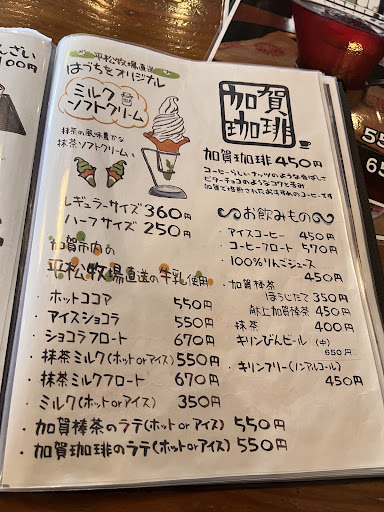 んざい
100円
平松牧場直送
はづちをオリジナル
ミルク
ソフトクリーム
抹茶の風味豊かな
抹茶ソフトクリームも
レギュラーサイズ 360円
ハーフサイズ 250円
加賀市内の
平松牧場直送の牛乳使用
・ホットココア 550円
・アイスショコラ 550円
・ショコラフロート 670円
・抹茶ミルク(ホットorアイス) 550円
・抹茶ミルクフロート 670円
・ミルク(ホットorアイス) 350円
・加賀棒茶のラテ(ホットorアイス) 550円
・加賀珈琲のラテ(ホットorアイス) 550円
加賀
珈琲
加賀珈琲 450円
コーヒーらしいナッツのような香ばしさ
ビターチョコのようなコクと苦み
加賀で焙煎されたおすすめのコーヒーです
お飲みもの
・アイスコーヒー 450円
・コーヒーフロート 570円
・100%りんごジュース
450円
・加賀棒茶
ほうじたて 350円
献上加賀棒茶 450円
・抹茶 400円
・キリンびんビール (中)
650円
・キリンフリー(ノンアルコール)
450円